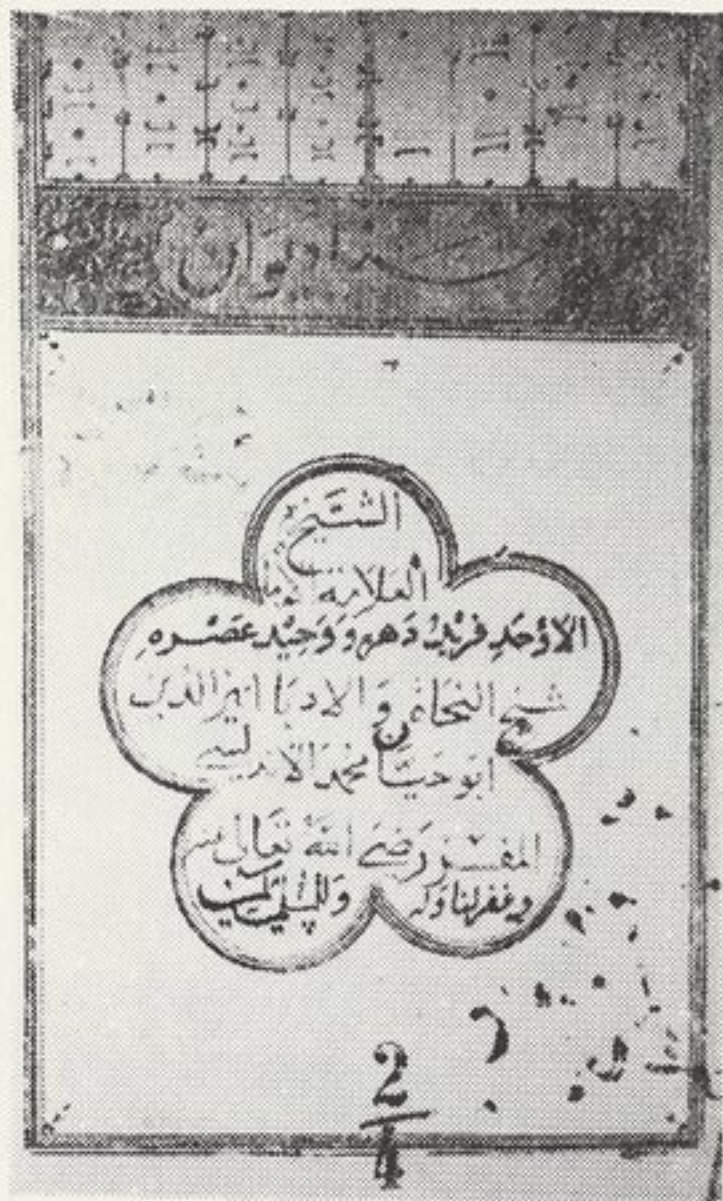 ديوان
الشيخ
العلامة
الاوْحَدِ فَرِيْدُ دَهره وَوَحِيْد عَصْره
شيخ النحاة والادبا اثير الدين
ابو حيان محمد الاندلسي
المفسر رَضي الله تعالى عنه
وغفر لنا وله وللمسلمين
2
4